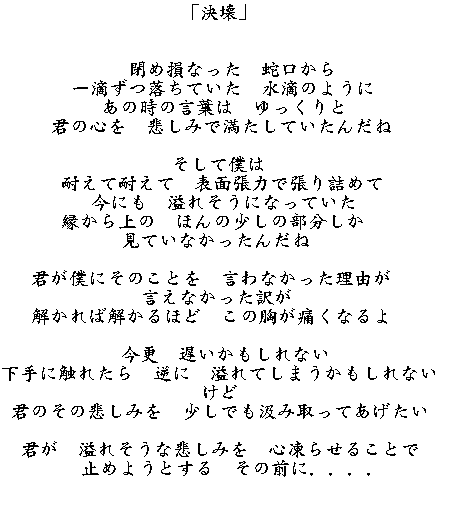 「決壊」
閉め損なった　蛇口から
一滴ずつ落ちていた　水滴のように
あの時の言葉は　ゆっくりと
君の心を　悲しみで満たしていたんだね
そして僕は
耐えて耐えて　表面張力で張り詰めて
今にも　溢れそうになっていた
縁から上の　ほんの少しの部分しか
見ていなかったんだね
君が僕にそのことを　言わなかった理由が
言えなかった訳が
解かれば解かるほど　この胸が痛くなるよ
今更　遅いかもしれない
下手に触れたら　逆に　溢れてしまうかもしれない
けど
君のその悲しみを　少しでも汲み取ってあげたい
君が　溢れそうな悲しみを　心凍らせることで
止めようとする　その前に．．．．